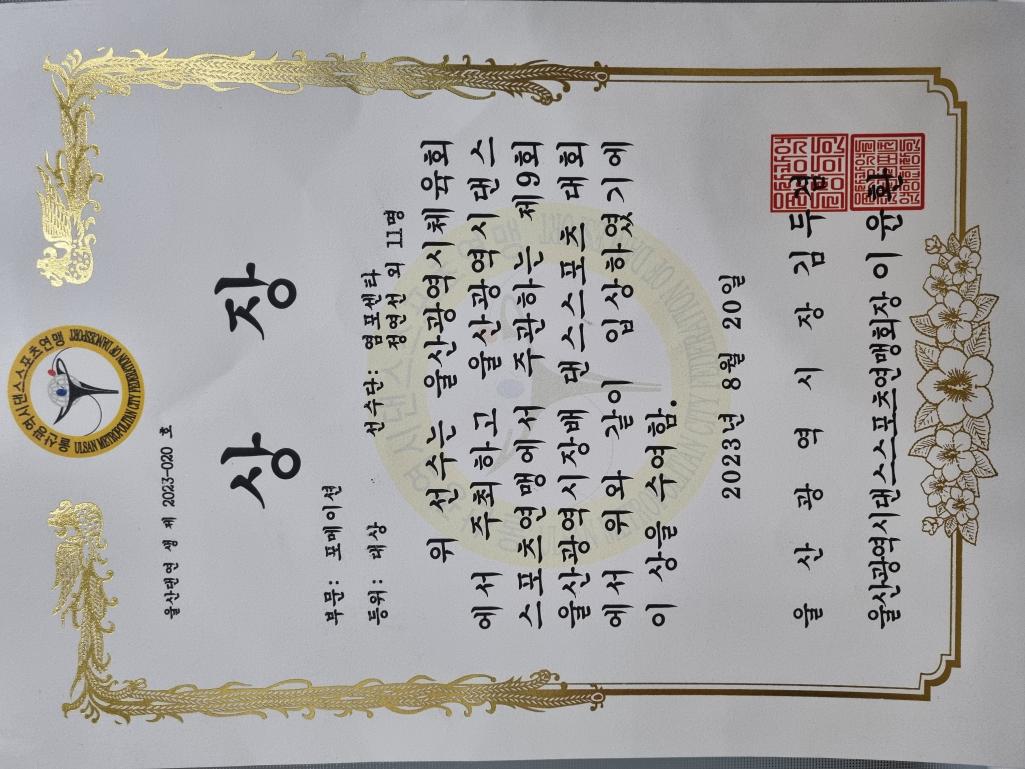 울산광역시댄스스포츠연맹
ULSAN METROPOLITAN CITY FEDERATION OF DANCESPORT
울산댄연 생 제 2023-020 호
상 장
부문: 포메이션
등위: 대상
선수단: 염포센타
정연선 외 11명
위 선수는 울산광역시체육회
에서 주최하고 울산광역시댄스
스포츠연맹에서 주관하는 제9회
울산광역시장배 댄스스포츠 대회
에서 위와 같이 입상하였기에
이 상을 수여함.
2023년 8월 20일
울산광역시장 김두겸
울산광역시댄스스포츠연맹회장 이윤환